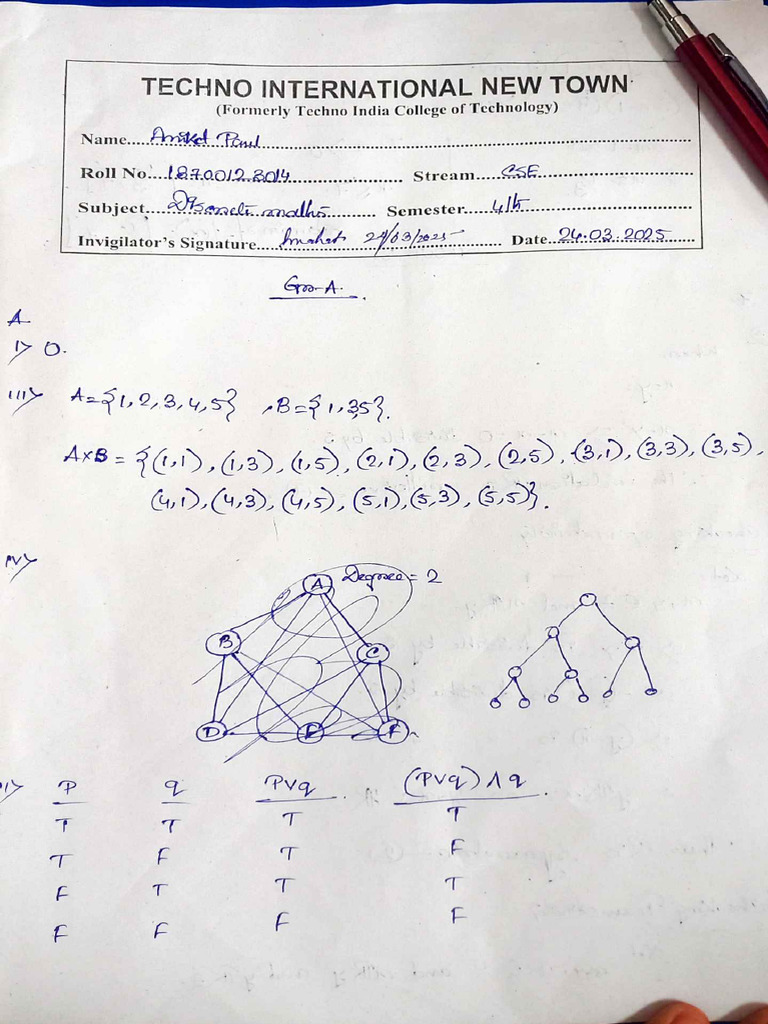 TECHNO INTERNATIONAL NEW TOWN
(Formerly Techno India College of Technology)
Name
Roll No. 18700123014 Stream CSE
Subject Semester 4th
Invigilator's Signature 24/03/2025 Date 24.03.2025
Gro-A.
A
I> 0.
III> A={1,2,3,4,5} , B={1,35}.
A×B = {(1,1), (1,3), (1,5), (2,1), (2,3), (2,5), (3,1), (3,3), (3,5),
(4,1), (4,3), (4,5), (5,1), (5,3), (5,5)}.
IV>
A Degree = 2
B
C
D E F
P q PVq (PVq) Λ q
T T T T
T F T F
F T T T
F F F F